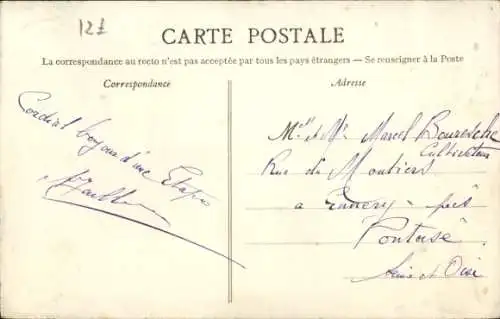 12f
CARTE POSTALE
La correspondance au recto n'est pas acceptée par tous les pays étrangers — Se renseigner à la Poste
Correspondance
Adresse
Cordial bonjour d'une Etape
Mell et Mr Marcel Bouresche
Cultivateur
Rue du Moutier
à Ennery - près
Pontoise
Seine et Oise